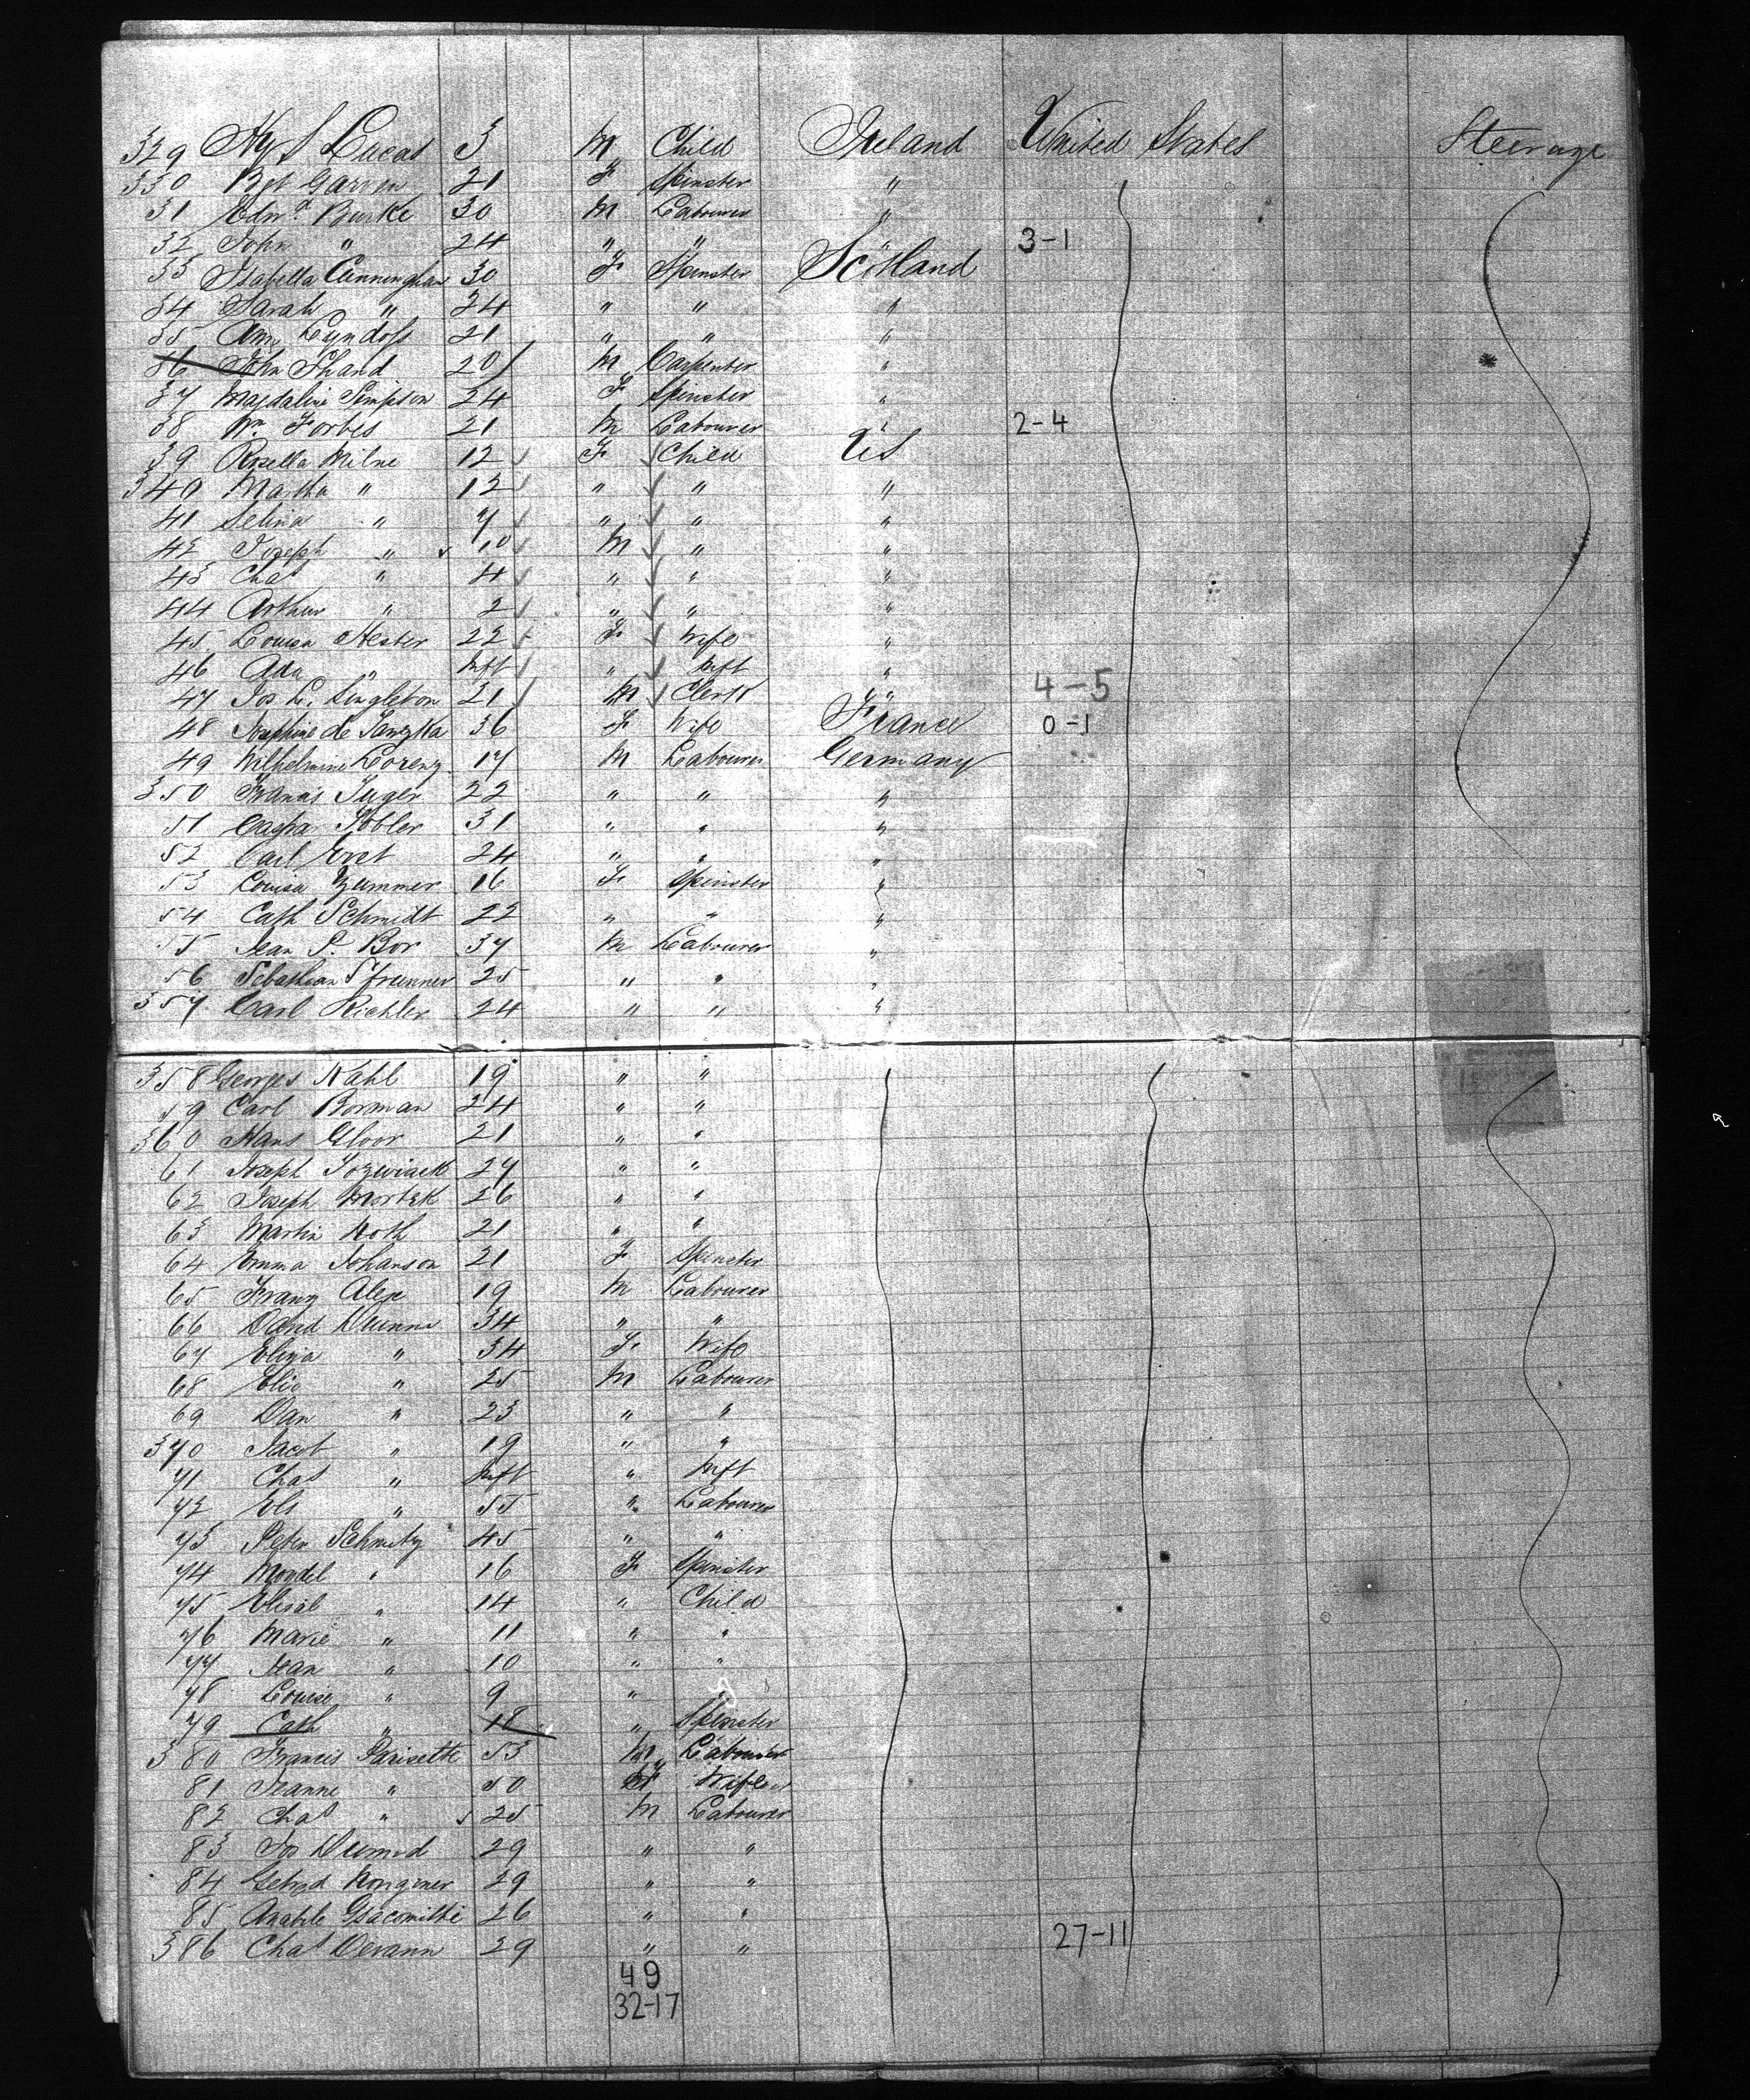 329 Hy S Lucas 3 M Child Ireland United States Steerage
330 Bgt Garven 21 F Spinster "
31 Edwd Burke 30 M Labourer "
32 John " 24 " " " 3-1
33 Isabella Cunningham 30 F Spinster Scotland
34 Sarah " 24 " " "
35 Ann Lyndoss 21 " " "
36 John Shand 20 M Carpenter "
37 Magdaline Simpson 24 F Spinster "
38 Wm Forbes 21 M Labourer " 2-4
39 Rosella Milne 12 F Child US
340 Martha " 12 " " "
41 Selina " 7 " " "
42 Joseph " 10 M " "
43 Chas " 4 " " "
44 Arthur " 2 " " "
45 Louisa Hester 22 F Wife "
46 Ada " Inft " Inft "
47 Jos L. Singleton 21 M Clerk " 4-5
48 Josephine de 36 F Wife France 0-1
49 Wilhelmine Lorenz 17 M Labourer Germany
350 Francis Juger 22 " " "
51 Caspar Tobler 31 " " "
52 Carl Evet 24 " " "
53 Louisa Zummer 16 F Spinster "
54 Cath Schmidt 22 " " "
55 Jean P. Bor 37 M Labourer "
56 Sebathian 25 " " "
357 Carl Richler 24 " " "
358 Georges Kahl 19 " "
59 Carl Borman 24 " "
360 Hans Gloor 21 " "
61 Joseph Jozwiack 27 " "
62 Joseph Mortek 26 " "
63 Martin Roth 21 " "
64 Emma Johanson 21 F Spinster
65 Franz Alex 19 M Labourer
66 David Dkunne 34 " "
67 Eliza " 34 F Wife
68 Elie " 25 M Labourer
69 Dan " 23 " "
370 Jacob " 19 " "
71 Chas " Inft " Inft
72 Els " 55 " Labourer
73 Peter Schmitz 45 " "
74 Mondel " 16 F Spinster
75 Elisab " 14 " Child
76 Marie " 11 " "
77 Jean " 10 " "
78 Louise " 9 " "
79 Cath " 18 " Spinster
380 Francis Parisette 53 M Labourer
81 Jeanne " 50 F Wife
82 Chas " 25 M Labourer
83 Jos 29 " "
84 29 " "
85 Anabile Giacomithi 26 " "
386 Chas Devann 29 " " 27-11
49
32-17